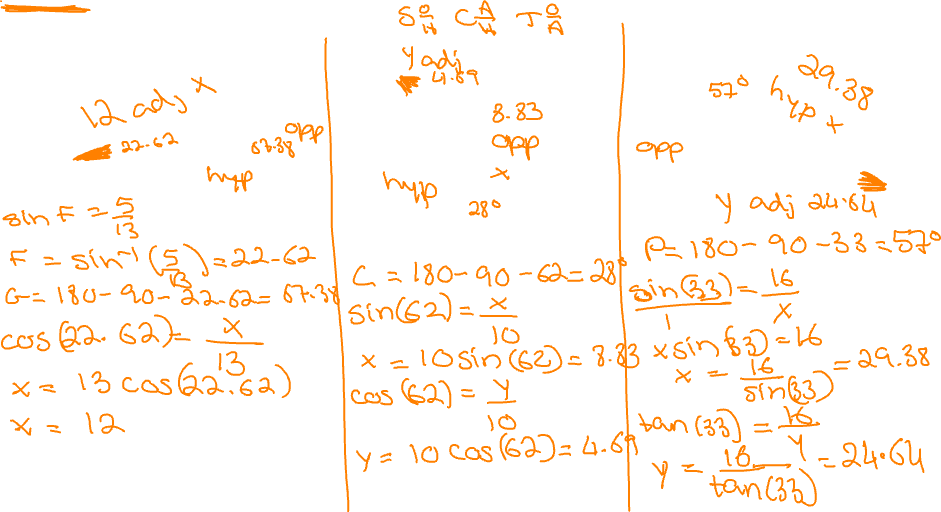 S O/H C A/H T O/A
12 adj x
22.62
67.38 opp
hyp
sin F = 5/13
F = sin⁻¹(5/13) = 22.62
G = 180-90-22.62 = 67.38
cos(22.62) = x/13
x = 13 cos(22.62)
x = 12
y adj
4.69
8.83
opp
x
hyp
28°
C = 180-90-62=28°
sin(62) = x/10
x = 10 sin(62) = 8.83
cos(62) = y/10
y = 10 cos(62) = 4.69
57° hyp x 29.38
opp
y adj 24.64
P = 180-90-33=57°
sin(33)/1 = 16/x
x sin(33) = 16
x = 16/sin(33) = 29.38
tan(33) = 16/y
y = 16/tan(33) = 24.64